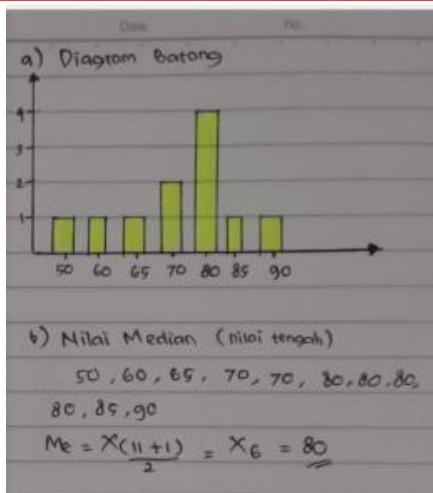 Date
No.
a) Diagram Batang
4
3
2
1
50 60 65 70 80 85 90
b) Nilai Median (nilai tengah)
50, 60, 65, 70, 70, 80, 80, 80,
80, 85, 90
Me = X(11+1)/2 = X6 = 80